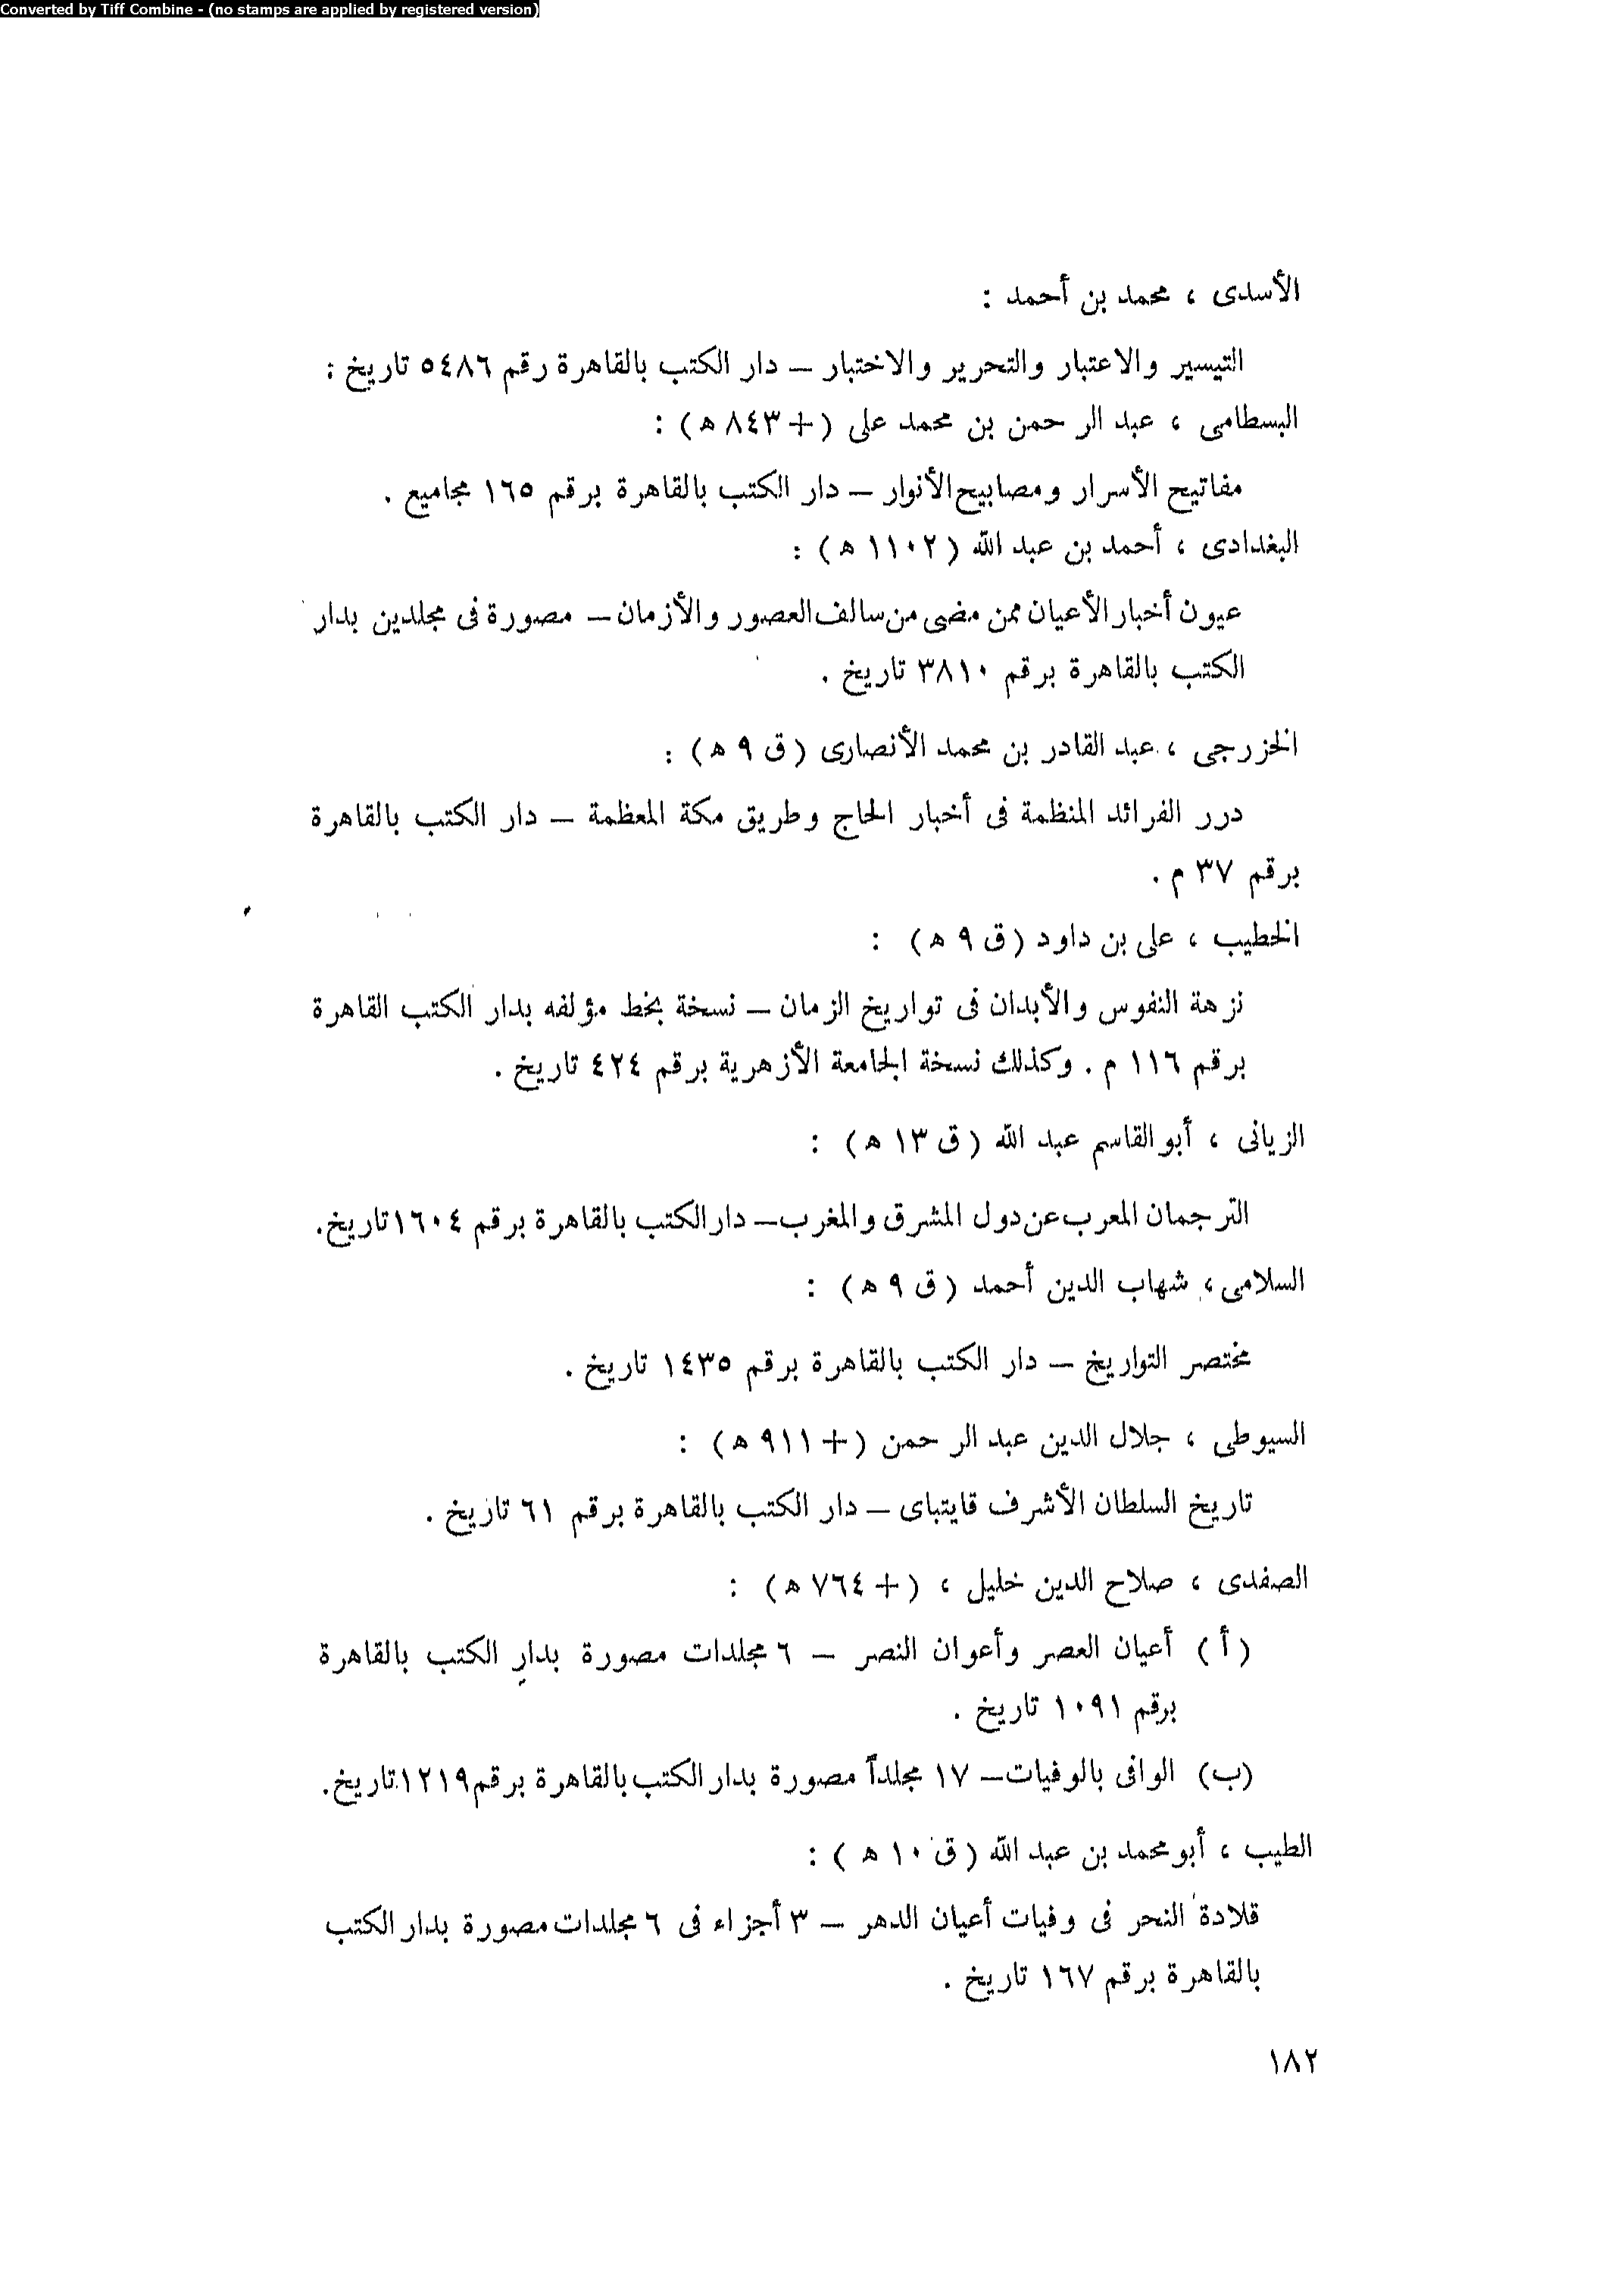 Converted by Tiff Combine - (no stamps are applied by registered version)
الأسدى ، محمد بن أحمد :
التيسير والاعتبار والتحرير والاختبار – دار الكتب بالقاهرة رقم ٥٤٨٦ تاريخ :
البسطامى ، عبد الرحمن بن محمد على (+ ٨٤٣ ه) :
مفاتيح الأسرار ومصابيح الأنوار – دار الكتب بالقاهرة برقم ١٦٥ مجاميع .
البغدادى ، أحمد بن عبد الله (١١٠٢ ه) :
عيون أخبار الأعيان ممن مضى من سالف العصور والأزمان – مصورة فى مجلدين بدار
الكتب بالقاهرة برقم ٣٨١٠ تاريخ .
الخزرجى ، عبد القادر بن محمد الأنصارى (ق ٩ ه) :
درر الفرائد المنظمة فى أخبار الحاج وطريق مكة المعظمة – دار الكتب بالقاهرة
برقم ٣٧ م .
الخطيب ، على بن داود (ق ٩ ه) :
نزهة النفوس والأبدان فى تواريخ الزمان – نسخة بخط مؤلفه بدار الكتب القاهرة
برقم ١١٦ م . وكذلك نسخة الجامعة الأزهرية برقم ٤٢٤ تاريخ .
الزيانى ، أبو القاسم عبد الله (ق ١٣ ه) :
الترجمان المعرب عن دول المشرق والمغرب – دار الكتب بالقاهرة برقم ١٦٠٤ تاريخ.
السلامى ، شهاب الدين أحمد (ق ٩ ه) :
مختصر التواريخ – دار الكتب بالقاهرة برقم ١٤٣٥ تاريخ .
السيوطى ، جلال الدين عبد الرحمن (+ ٩١١ ه) :
تاريخ السلطان الأشرف قايتباى – دار الكتب بالقاهرة برقم ٦١ تاريخ .
الصفدى ، صلاح الدين خليل ، (+ ٧٦٤ ه) :
(أ) أعيان العصر وأعوان النصر – ٦ مجلدات مصورة بدار الكتب بالقاهرة
برقم ١٠٩١ تاريخ .
(ب) الوافى بالوفيات – ١٧ مجلداً مصورة بدار الكتب بالقاهرة برقم ١٢١٩ تاريخ.
الطيب ، أبو محمد بن عبد الله (ق ١٠ ه) :
قلادة النحر فى وفيات أعيان الدهر – ٣ أجزاء فى ٦ مجلدات مصورة بدار الكتب
بالقاهرة برقم ١٦٧ تاريخ .
١٨٢